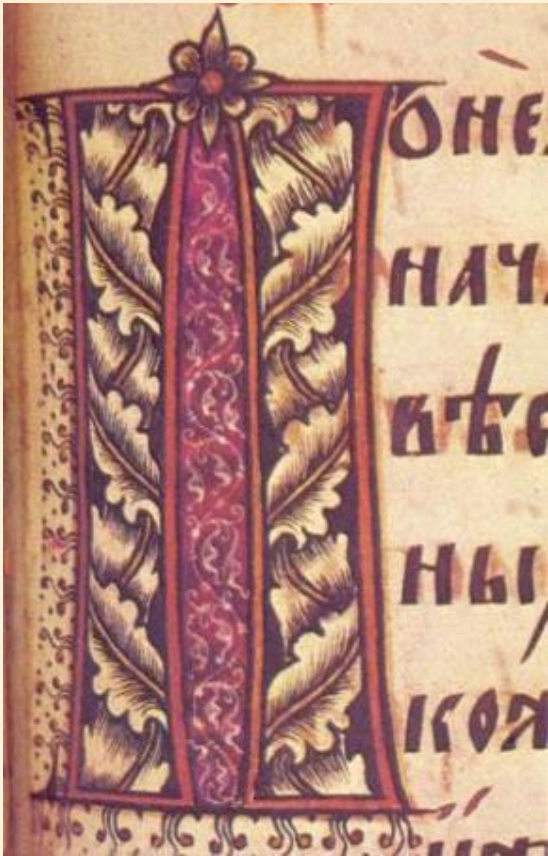 Поне
нач
вѣ
ны
ко